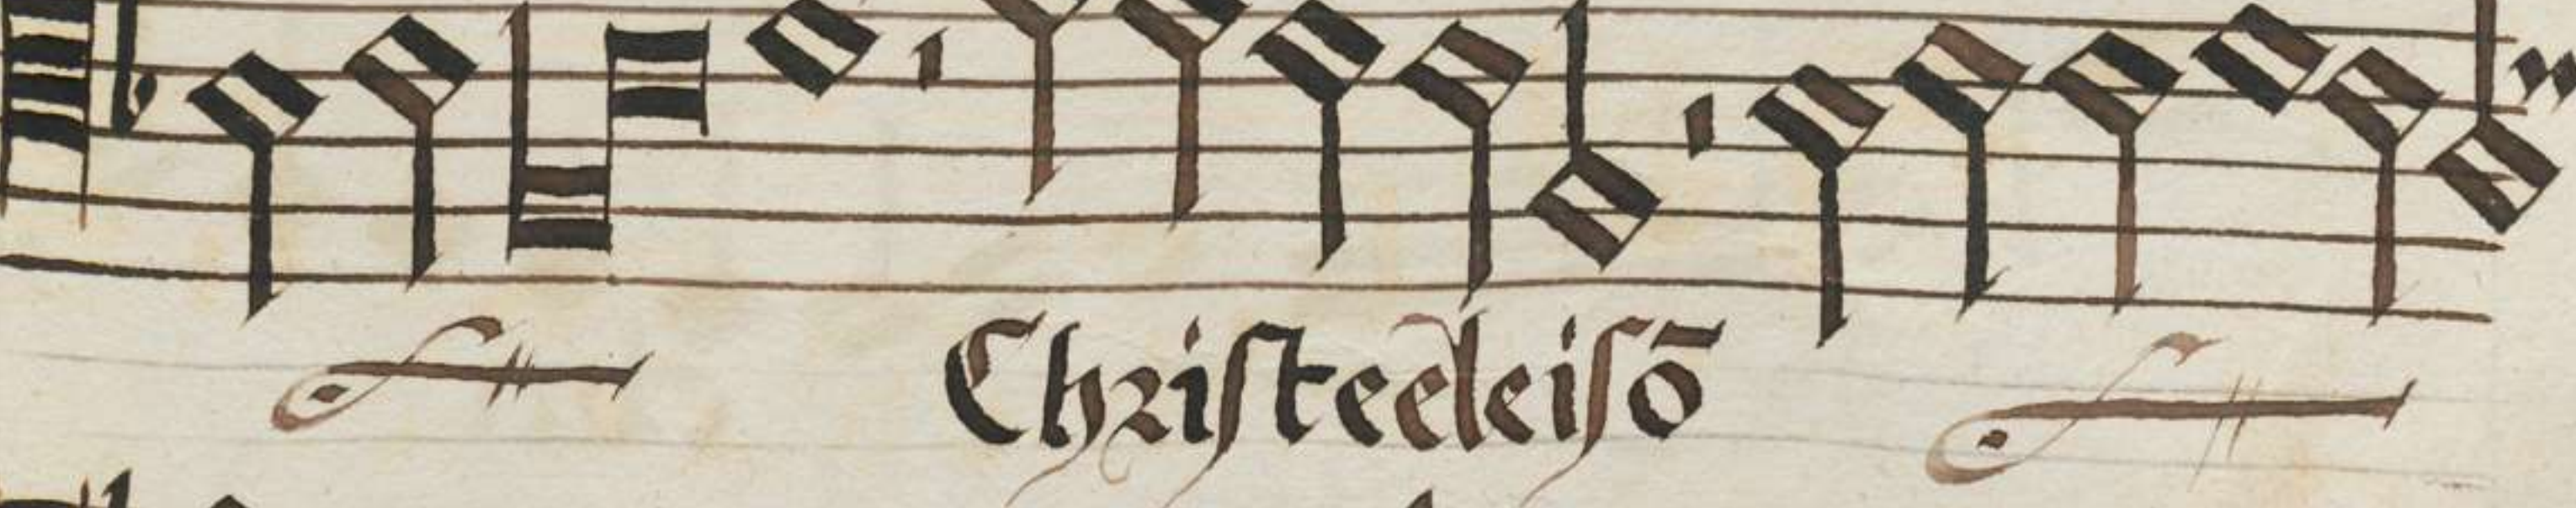 Christeeleisō